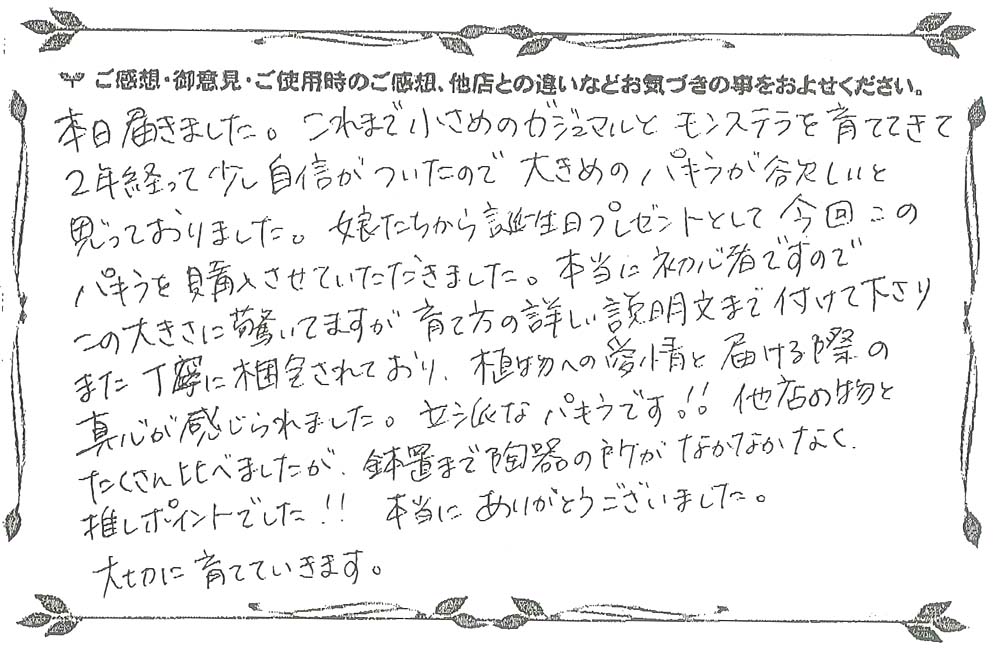 ご感想・御意見・ご使用時のご感想、他店との違いなどお気づきの事をおよせください。
本日届きました。これまで小さめのガジュマルと モンステラを育ててきて
2年経って少し自信がついたので大きめのパキラが欲しいと
思っておりました。娘たちから誕生日プレゼントとして今回この
パキラを購入させていただきました。本当に初心者ですので
この大きさに驚いてますが育て方の詳しい説明文まで付けて下さり
また丁寧に梱包されており、植物への愛情と届ける際の
真心が感じられました。立派なパキラです!! 他店の物と
たくさん比べましたが、鉢置まで陶器の所がなかなかなく、
推しポイントでした!! 本当にありがとうございました。
大切に育てていきます。